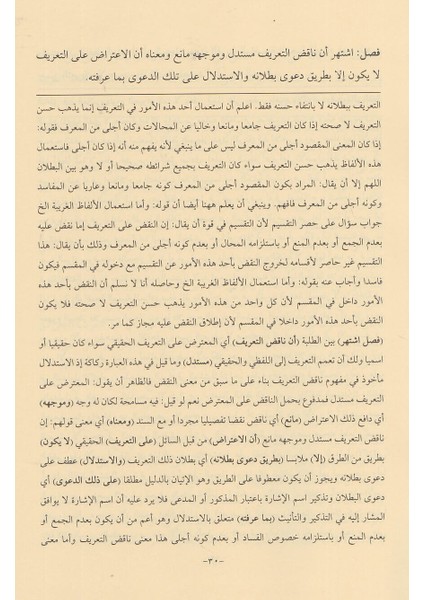 فصل: اشتهر أن ناقض التعريف مستدل وموجهه مانع ومعناه أن الاعتراض على التعريف
لا يكون إلا بطريق دعوى بطلانه والاستدلال على تلك الدعوى بما عرفته.
التعريف ببطلانه لا بانتفاء حسنه فقط. اعلم أن استعمال أحد هذه الأمور في التعريف إنما يذهب حسن
التعريف لا صحته إذا كان التعريف جامعا ومانعا وخاليا عن المحالات وكان أجلى من المعرف فقوله:
إذا كان المعنى المقصود أجلى من المعرف ليس على ما ينبغي لأنه يفهم منه أنه إذا كان أجلى فاستعمال
هذه الألفاظ يذهب حسن التعريف سواء كان التعريف بجميع شرائطه صحيحا أو لا وهو بين البطلان
اللهم إلا أن يقال: المراد بكون المقصود أجلى من المعرف كونه جامعا ومانعا وعاريا عن المفاسد
وكونه أجلى من المعرف فافهم. وينبغي أن يعلم ههنا أيضا أن قوله: وأما استعمال الألفاظ الغريبة الخ
جواب سؤال على حصر التقسيم لأن التقسيم في قوة أن يقال: إن النقض على التعريف إما نقض عليه
بعدم الجمع أو بعدم المنع أو باستلزامه المحال أو بعدم كونه أجلى من المعرف وذلك بأن يقال: هذا
التقسيم غير حاصر لأقسامه لخروج النقض بأحد هذه الأمور عن التقسيم مع دخوله في المقسم فيكون
فاسدا وأجاب عنه بقوله: وأما استعمال الألفاظ الغريبة الخ وحاصله أنا لا نسلم أن النقض بأحد هذه
الأمور داخل في المقسم لأن كل واحد من هذه الأمور يذهب حسن التعريف لا صحته فلا يكون
النقض بأحد هذه الأمور داخلا في المقسم لأن إطلاق النقض عليه مجاز كما مر.
(فصل اشتهر) بين الطلبة (أن ناقض التعريف) أي المعترض على التعريف الحقيقي سواء كان حقيقيا أو
اسميا ولك أن تعمم التعريف إلى اللفظي والحقيقي (مستدل) وما قيل في هذه العبارة ركاكة إذ الاستدلال
مأخوذ في مفهوم ناقض التعريف بناء على ما سبق من معنى النقض فالظاهر أن يقول: المعترض على
التعريف مستدل فمدفوع بحمل الناقض على المعترض نعم لو قيل: فيه مسامحة لكان له وجه (وموجهه)
أي دافع ذلك الاعتراض (مانع) أي ناقض نقضا تفصيليا مجردا أو مع السند (ومعناه) أي معنى قولهم: إن
ناقض التعريف مستدل وموجهه مانع (أن الاعتراض) من قبل السائل (على التعريف) الحقيقي (لا يكون)
بطريق من الطرق (إلا) ملابسا (بطريق دعوى بطلانه) أي بطلان ذلك التعريف (والاستدلال) عطف على
دعوى بطلانه ويجوز أن يكون معطوفا على الطريق وهو الإتيان بالدليل مطلقا (على ذلك الدعوى) أي
دعوى البطلان وتذكير اسم الإشارة باعتبار المذكور أو المدعى فلا يرد عليه أن اسم الإشارة لا يوافق
المشار إليه في التذكير والتأنيث (بما عرفته) متعلق بالاستدلال وهو أعم من أن يكون بعدم الجمع أو
بعدم المنع أو باستلزامه خصوص الفساد أو بعدم كونه أجلى هذا معنى ناقض التعريف وأما معنى
-٣٠-